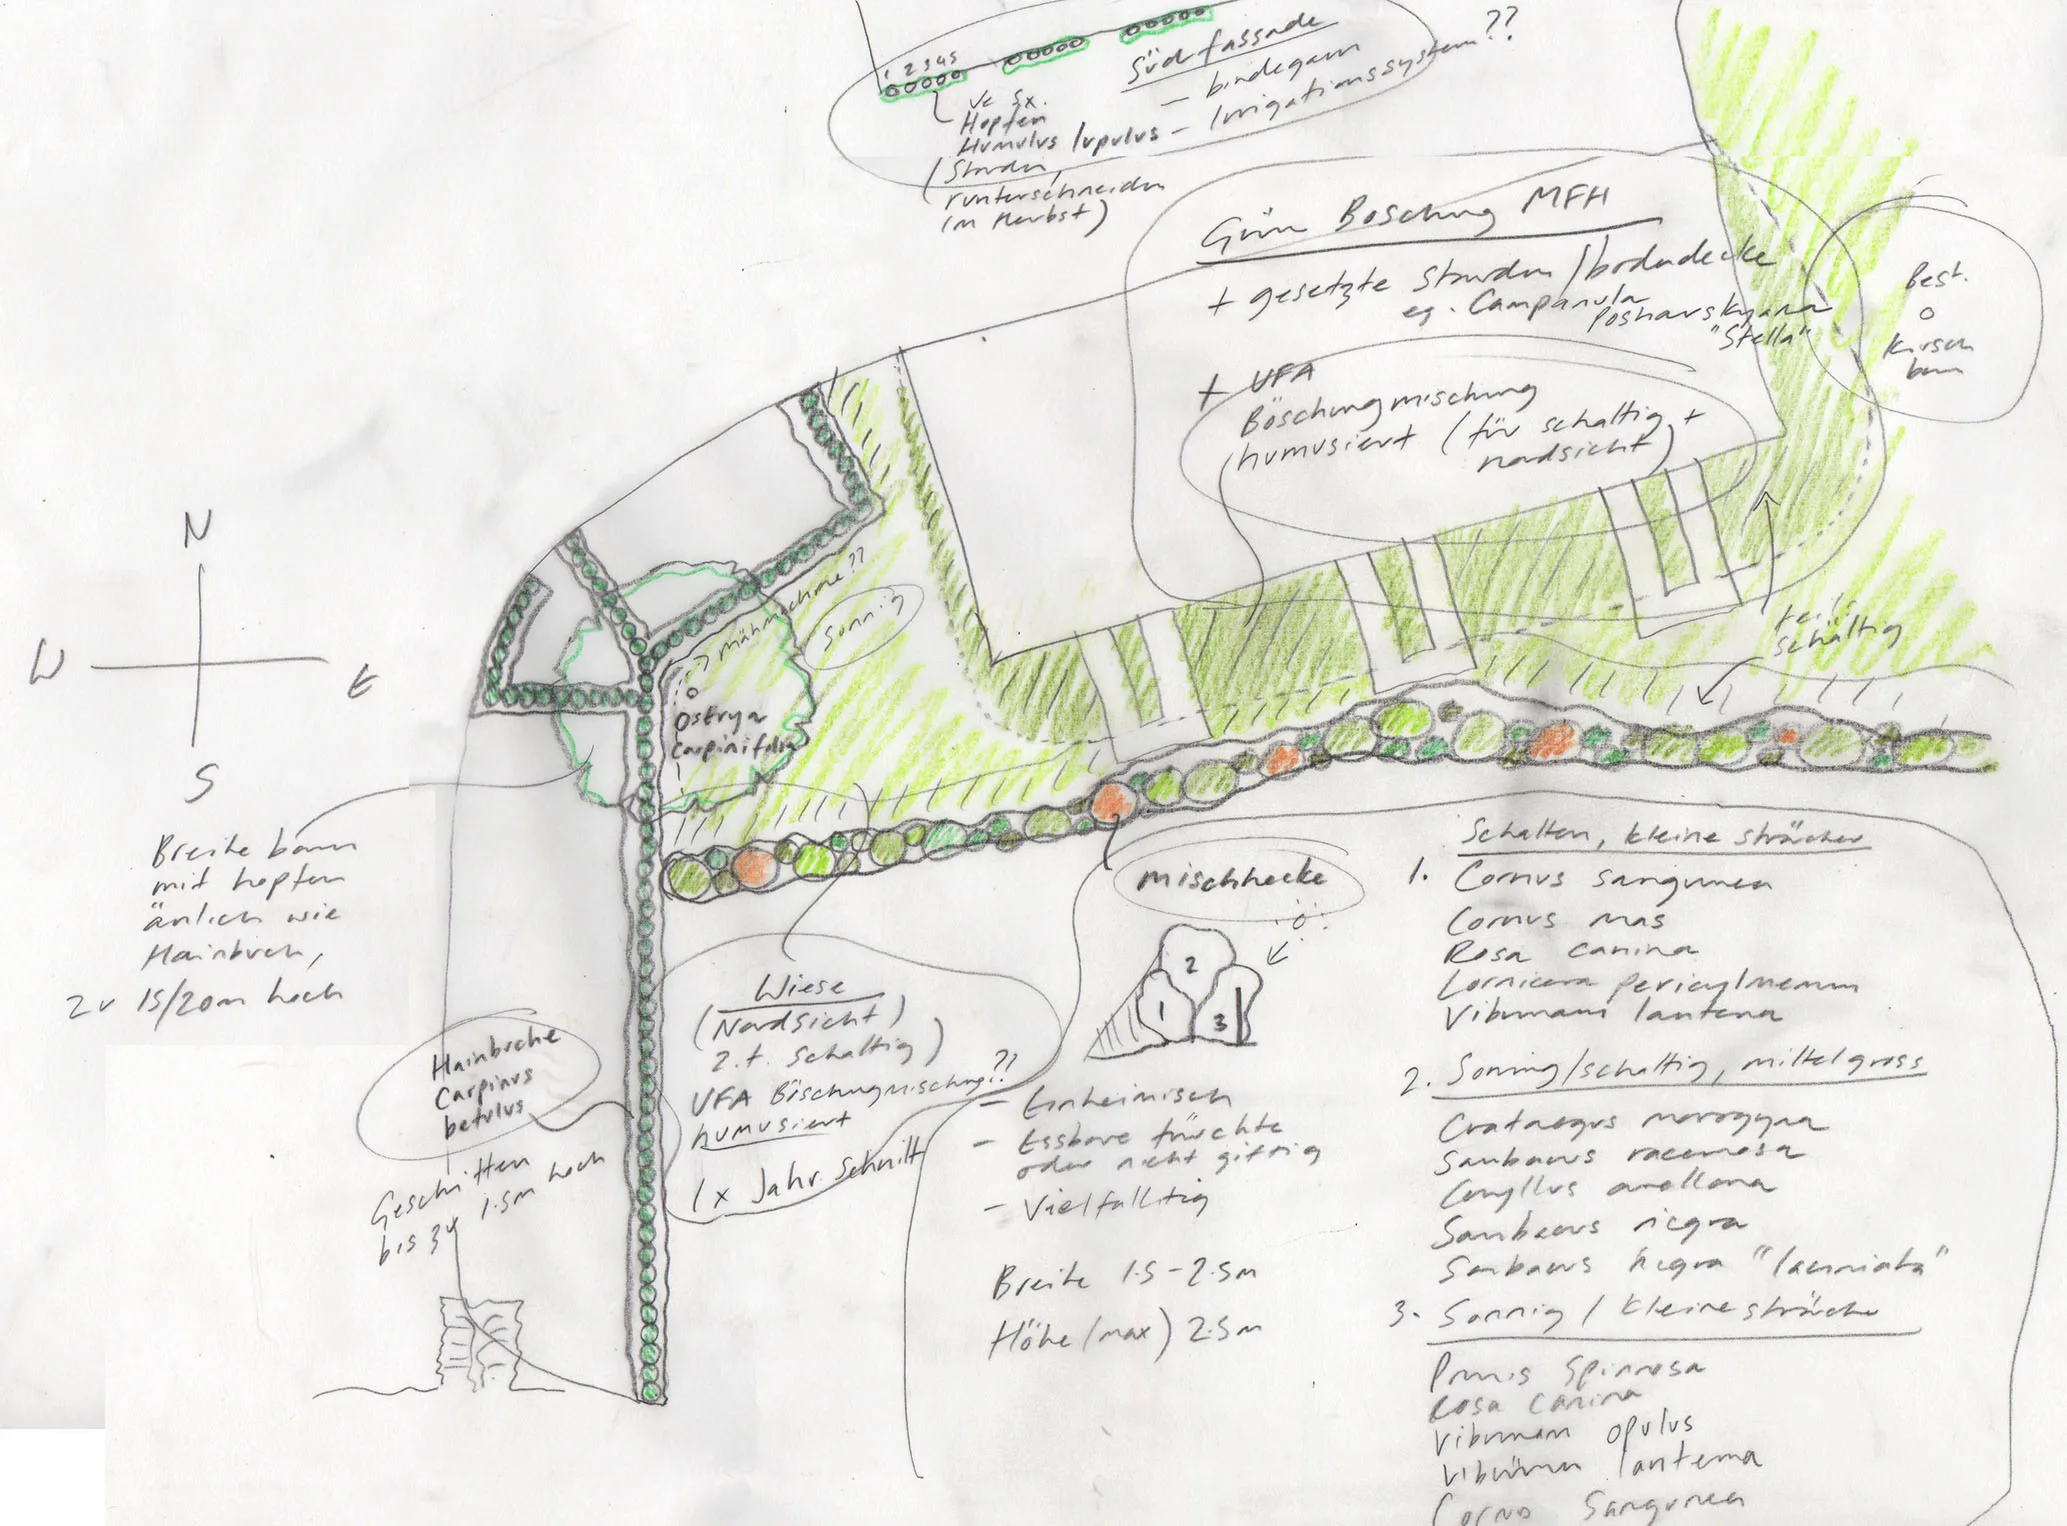 1 2 3 4 5
Südfassade
- bindegarn
- Irrigationssystem??
je 5x.
Hopfen
Humulus lupulus
(Stauden,
runterschneiden
im Herbst)
Grün Böschung MFH
+ gesetzte Stauden/bodendecke
eg. Campanula
Posharskyana
"Stella"
+ UFA
Böschungmischung
humusiert (für schattig +
nordsicht)
Best.
Kirsch
baum
N
W
E
S
mähmaschine??
Sonnig
teils
schattig
Ostrya
Carpinifolia
Breite baum
mit hopfen
änlich wie
Hainbuch,
zu 15/20m hoch
Mischhecke
1
2
3
Wiese
(Nordsicht)
z.t. schattig)
UFA Böschungmischung??
humusiert
1x Jahr Schnitt
Hainbuche
Carpinus
betulus
Geschnitten
bis zu 1.5m hoch
- Einheimisch
- Essbare früchte
oder nicht giftig
- Vielfalltig
Breite 1.5-2.5m
Höhe (max) 2.5m
Schatten, kleine sträucher
1. Cornus sanguinea
Cornus mas
Rosa canina
Lornicera periclymenum
Viburnam lantana
2. Sonnig/schattig, mittelgross
Crataegus monogyna
Sambucus racemosa
Coryllus avellana
Sambucus niegra
Sambucus niegra "laciniata"
3. Sonnig / kleine sträucher
Prunus Spinosa
Rosa Canina
Viburnam opulus
Viburnum lantana
Cornus Sanguinea